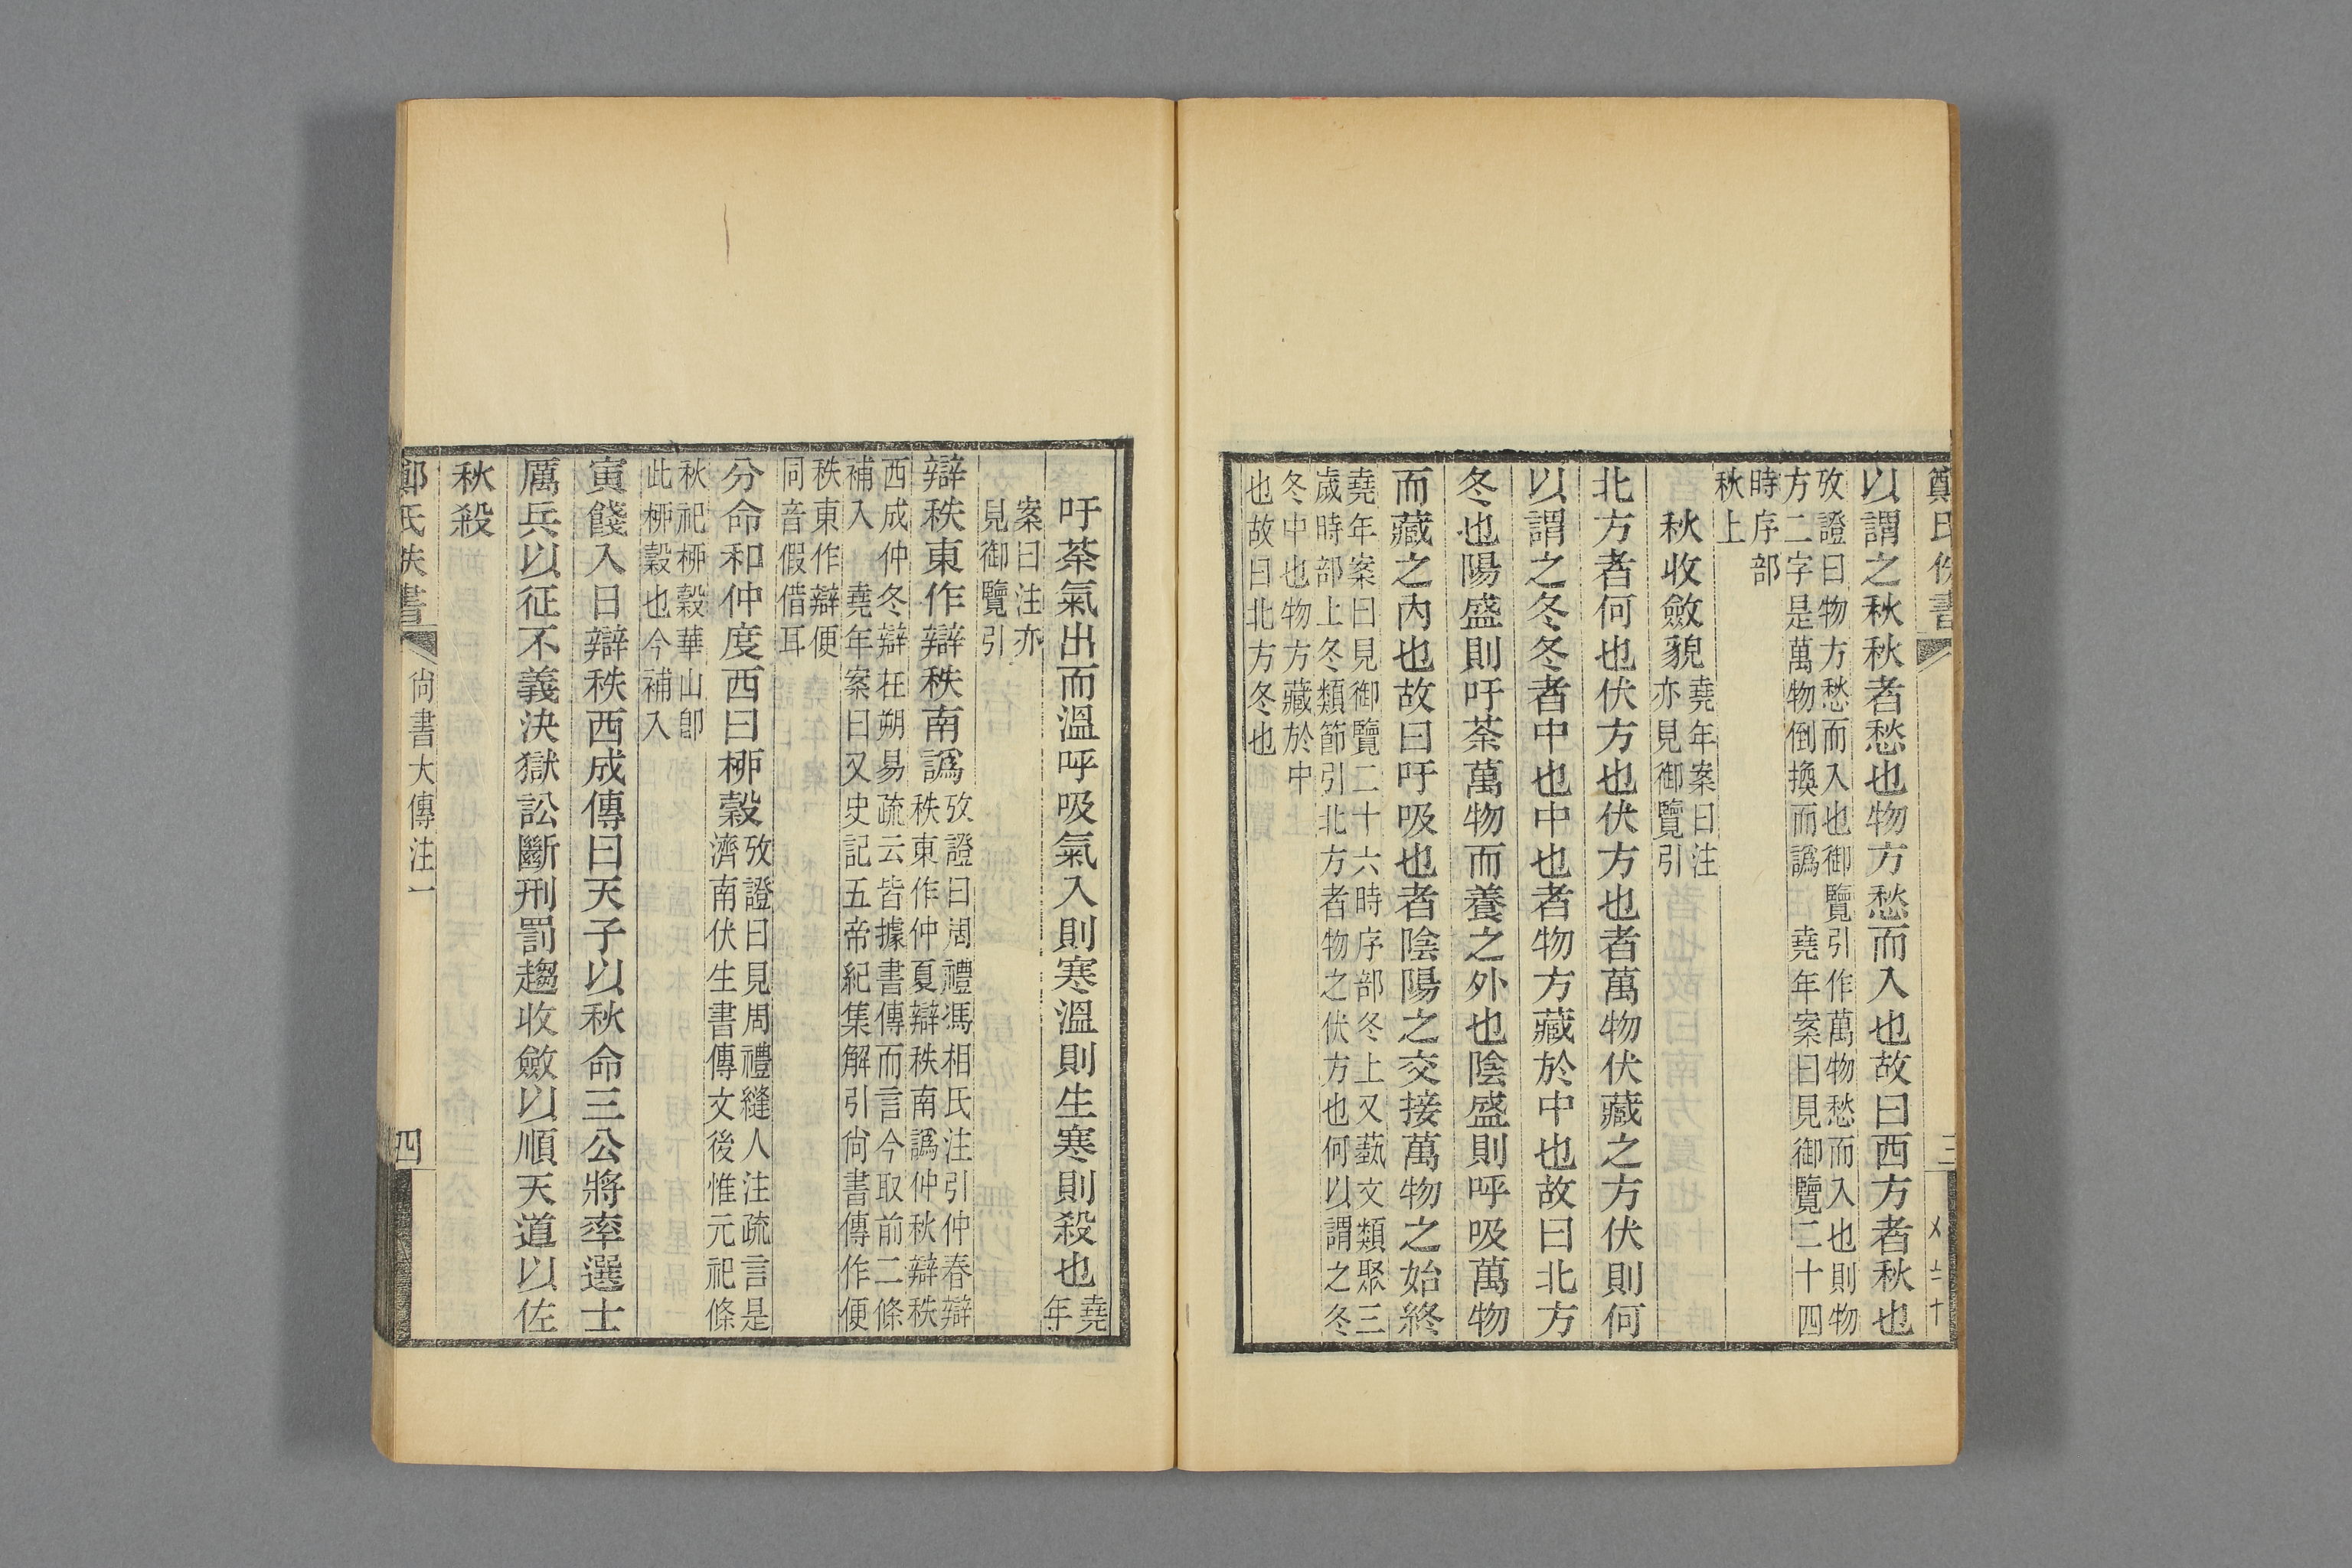 以謂之秋秋者愁也物方愁而入也故曰西方者秋也
攷證曰物方愁而入也御覽引作萬物愁而入也則物
方二字是萬物倒換而譌　堯年案曰見御覽二十四
時序部
秋上
秋收斂貌堯年案曰注
亦見御覽引
北方者何也伏方也伏方也者萬物伏藏之方伏則何
以謂之冬冬者中也中也者物方藏於中也故曰北方
冬也陽盛則吁荼萬物而養之外也陰盛則呼吸萬物
而藏之內也故曰吁吸也者陰陽之交接萬物之始終
堯年案曰見御覽二十六時序部冬上又蓺文類聚三
歲時部上冬類節引北方者物之伏方也何以謂之冬
冬中也物方藏於中
也故曰北方冬也
吁荼氣出而溫呼吸氣入則寒溫則生寒則殺也堯
年
案曰注亦
見御覽引
辯秩東作辯秩南譌攷證曰周禮馮相氏注引仲春辯
秩東作仲夏辯秩南譌仲秋辯秩
西成仲冬辯在朔易疏云皆據書傳而言今取前二條
補入　堯年案曰又史記五帝紀集解引尙書傳作便
秩東作辯便
同音假借耳
分命和仲度西曰柳穀攷證曰見周禮縫人注疏言是
濟南伏生書傳文後惟元祀條
秋祀柳穀華山卽
此柳穀也今補入
寅餞入日辯秩西成傳曰天子以秋命三公將率選士
厲兵以征不義決獄訟斷刑罰趨收斂以順天道以佐
秋殺
鄭氏佚書
尙書大傳注一
四